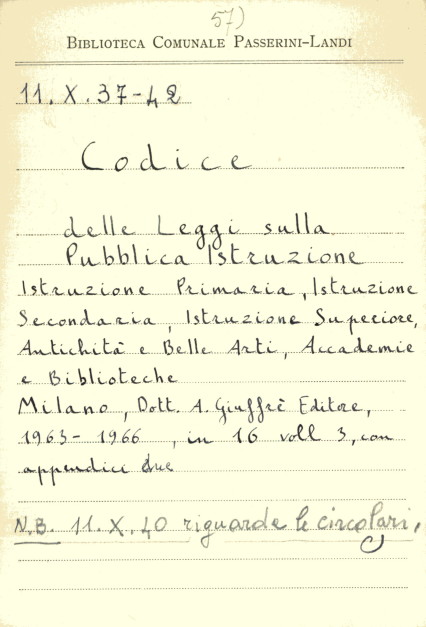 57)
BIBLIOTECA COMUNALE PASSERINI-LANDI
11. X. 37-42
Codice
delle Leggi sulla
Pubblica Istruzione
Istruzione Primaria, Istruzione
Secondaria, Istruzione Superiore,
Antichità e Belle Arti, Accademie
e Biblioteche
Milano, Dott. A. Giuffrè Editore,
1963-1966, in 16 voll 3, con
appendici due
N.B. 11. X. 40 riguarda le circolari,